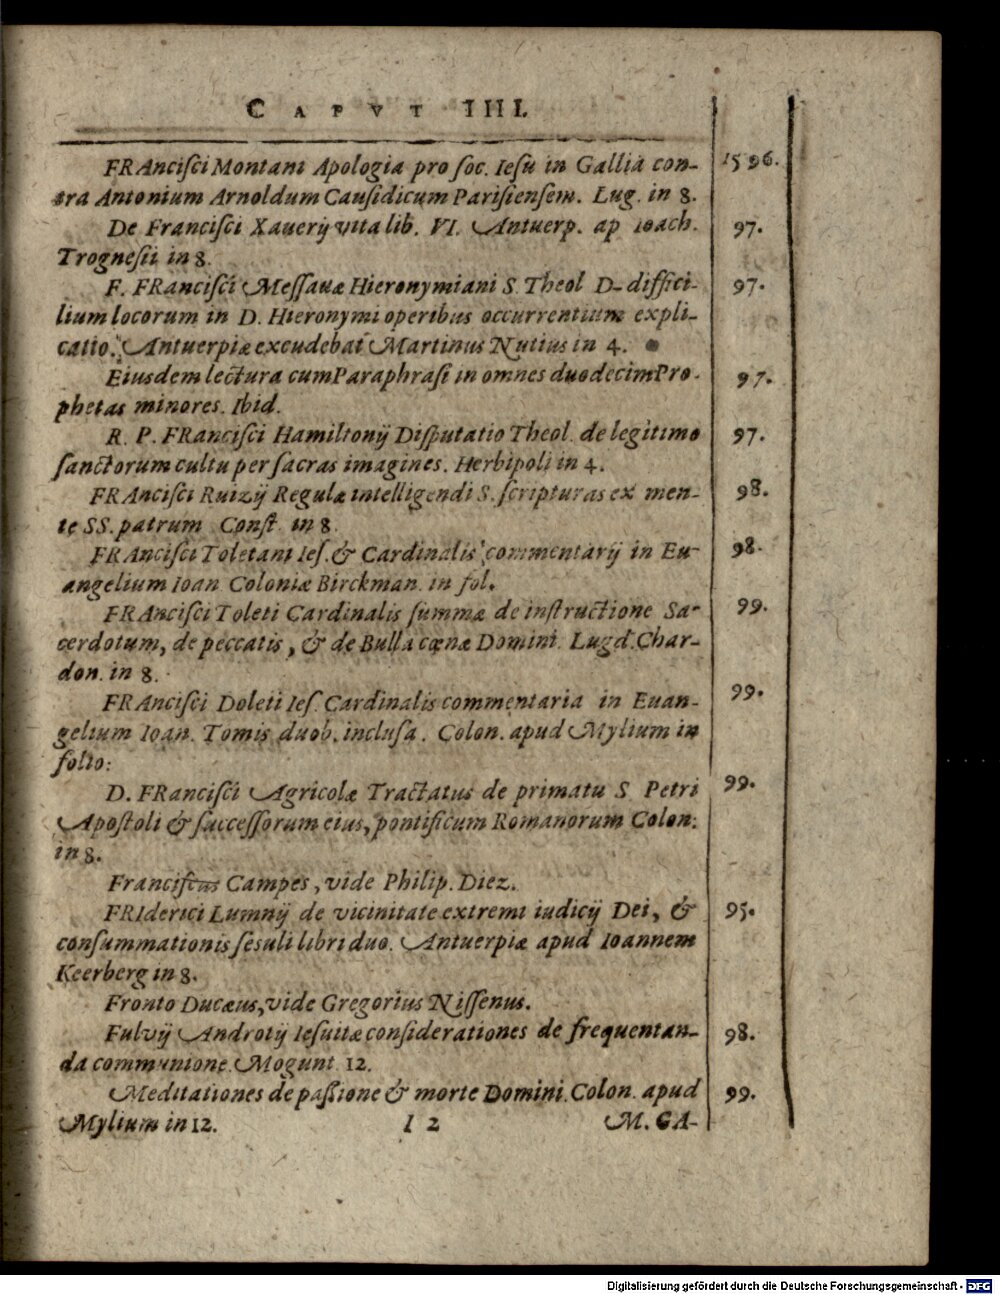 CAPVT IIII.
FRAnciſci Montani Apologia pro ſoc. Ieſu in Gallia con- 1596.
tra Antonium Arnoldum Cauſidicum Pariſienſem. Lug. in 8.
De Franciſci Xauerij vita lib. VI. Antuerp. ap Ioach. 97.
Trogneſii in 8.
F. FRanciſci Meſſauæ Hieronymiani S. Theol D. difſici- 97.
lium locorum in D. Hieronymi operibus occurrentium expli-
catio. Antuerpiæ excudebat Martinus Nutius in 4.
Eiusdem lectura cum Paraphraſi in omnes duodecim Pro- 97.
phetas minores. Ibid.
R. P. FRanciſci Hamiltonij Diſputatio Theol. de legitimo 97.
ſanctorum cultu per ſacras imagines. Herbipoli in 4.
FRAnciſci Ruizij Regulæ intelligendi S. ſcripturas ex men- 98.
te SS. patrum Conſt. in 8.
FRAnciſci Toletani Ieſ. & Cardinalis commentarij in Eu- 98.
angelium Ioan Coloniæ Birckman. in fol.
FRAnciſci Toleti Cardinalis ſummæ de inſtructione Sa- 99.
cerdotum, de peccatis, & de Bulla cœnæ Domini. Lugd. Char-
don. in 8.
FRAnciſci Doleti Ieſ. Cardinalis commentaria in Euan- 99.
gelium Ioan. Tomis duob. incluſa. Colon. apud Mylium in
folio:
D. FRanciſci Agricolæ Tractatus de primatu S Petri 99.
Apoſtoli & ſucceſſorum eius, pontificum Romanorum Colon.
in 8.
Franciſcus Campes, vide Philip. Diez.
FRIderici Lumnij de vicinitate extremi iudicij Dei, & 95.
conſummationis ſesuli libri duo. Antuerpiæ apud Ioannem
Keerberg in 8.
Fronto Ducæus, vide Gregorius Niſſenus.
Fulvij Androtij Ieſuitæ conſiderationes de frequentan- 98.
da communione. Mogunt. 12.
Meditationes de paſſione & morte Domini. Colon. apud 99.
Mylium in 12. I 2 M. GA-
Digitalisierung gefördert durch die Deutsche Forschungsgemeinschaft - DFG